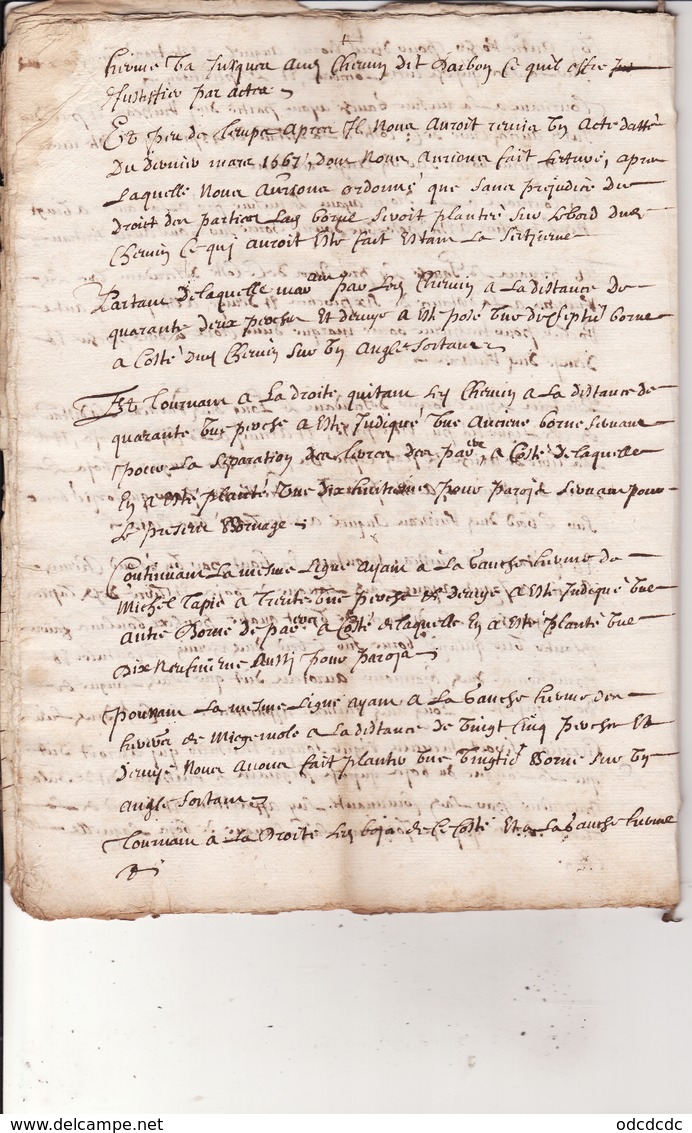 herme va jusques aud Chemin dit Darbon ce quil offre
Justiffier par actes
Et peu de temps apres Il Nous auroit remis un acte datté
Du dernier mars 1667, dont Nous aurions fait lecture, apres
Laquelle Nous aurions ordonné que sans prejudice du
droit des parties Lad borne seroit plantée sur le bord dud
Chemin ce qui auroit esté fait Estant La
Partant de laquelle par led Chemin a la distance de
quarante deux perches Et demye a esté posé une dixseptie borne
a Costé dud Chemin sur un Angle sortant
Et Tournant a La droite, quitant led Chemin a la distance de
quarante une perche a esté Indiqué une anciene borne servant
pour La separation des terres des a Costé de laquelle
En a esté planté une dix huitieme pour Paroja servant pour
Le present Bornage
Continuant La mesme Ligne ayant a La Gauche herme de
Michel Tapie a Trente une perche et demye a esté Indiqué une
autre Borne de a Costé de laquelle En a esté planté une
Dix Neufvieme Aussi pour Paroja
Poursuivant La mesme Ligne ayant a La Gauche herme des
heritiers de Miegemole a La distance de vingt cinq perches Et
demye Nous avons fait planter une vingtie Borne sur un
angle sortant
Tournant a La Droite Led bois de ce Costé Et a La Gauche herme